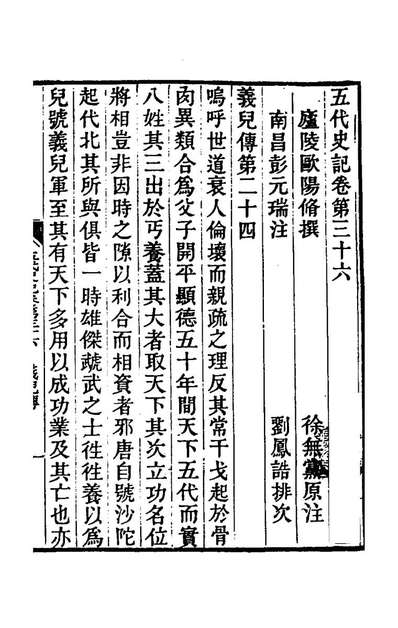 五代史記卷第三十六
廬陵歐陽脩撰 徐無黨原注
南昌彭元瑞注 劉鳳誥排次
義兒傳第二十四
嗚呼世道衰人倫壞而親疏之理反其常干戈起於骨
肉異類合爲父子開平顯德五十年間天下五代而實
八姓其三出於丐養蓋其大者取天下其次立功名位
將相豈非因時之隙以利合而相資者邪唐自號沙陀
起代北其所與俱皆一時雄傑虣武之士徃徃養以爲
兒號義兒軍至其有天下多用以成功業及其亡也亦